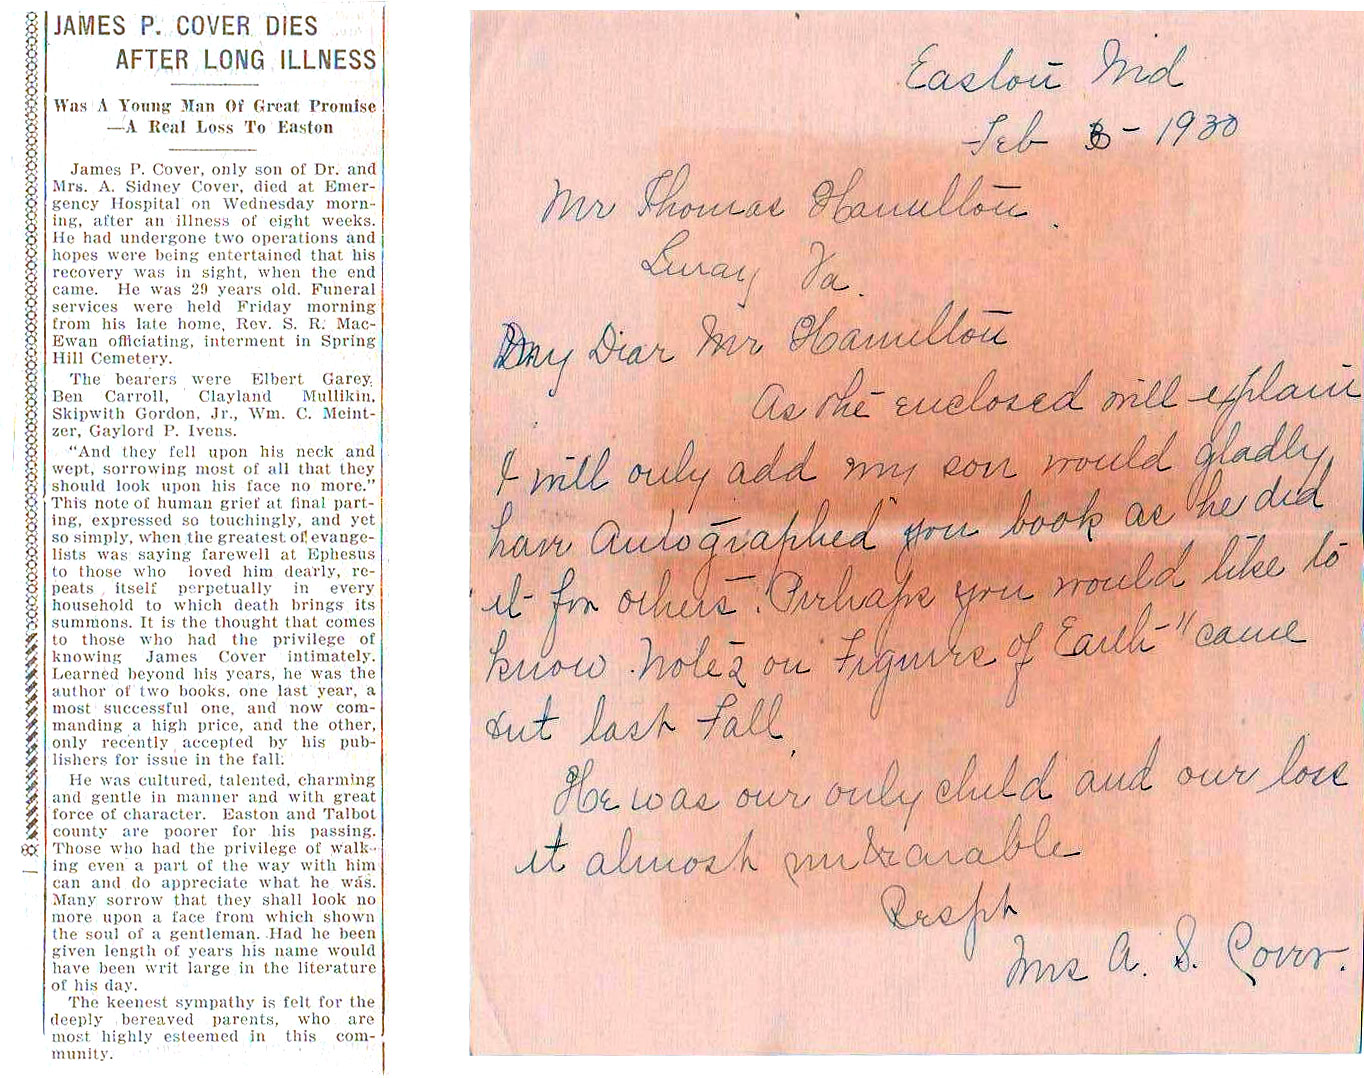 JAMES P. COVER DIES
AFTER LONG ILLNESS
Was A Young Man Of Great Promise
—A Real Loss To Easton
James P. Cover, only son of Dr. and
Mrs. A. Sidney Cover, died at Emer-
gency Hospital on Wednesday morn-
ing, after an illness of eight weeks.
He had undergone two operations and
hopes were being entertained that his
recovery was in sight, when the end
came. He was 29 years old. Funeral
services were held Friday morning
from his late home, Rev. S. R. Mac-
Ewan officiating, interment in Spring
Hill Cemetery.
The bearers were Elbert Garey,
Ben Carroll, Clayland Mullikin,
Skipwith Gordon, Jr., Wm. C. Meint-
zer, Gaylord P. Ivens.
"And they fell upon his neck and
wept, sorrowing most of all that they
should look upon his face no more."
This note of human grief at final part-
ing, expressed so touchingly, and yet
so simply, when the greatest of evange-
lists was saying farewell at Ephesus
to those who loved him dearly, re-
peats itself perpetually in every
household to which death brings its
summons. It is the thought that comes
to those who had the privilege of
knowing James Cover intimately.
Learned beyond his years, he was the
author of two books, one last year, a
most successful one, and now com-
manding a high price, and the other,
only recently accepted by his pub-
lishers for issue in the fall.
He was cultured, talented, charming
and gentle in manner and with great
force of character. Easton and Talbot
county are poorer for his passing.
Those who had the privilege of walk-
ing even a part of the way with him
can and do appreciate what he was.
Many sorrow that they shall look no
more upon a face from which shown
the soul of a gentleman. Had he been
given length of years his name would
have been writ large in the literature
of his day.
The keenest sympathy is felt for the
deeply bereaved parents, who are
most highly esteemed in this com-
munity.
Easton Md
Feb - 1930
Mr Thomas Hamilton.
Luray Va.
My Dear Mr Hamilton
As the enclosed will explain
I will only add my son would gladly
have Autographed you book as he did
it for others. Perhaps you would like to
know. Notes on Figures of Earth" came
out last Fall.
He was our only child and our loss
it almost unbearable
Respt
Mrs A. S. Cover.